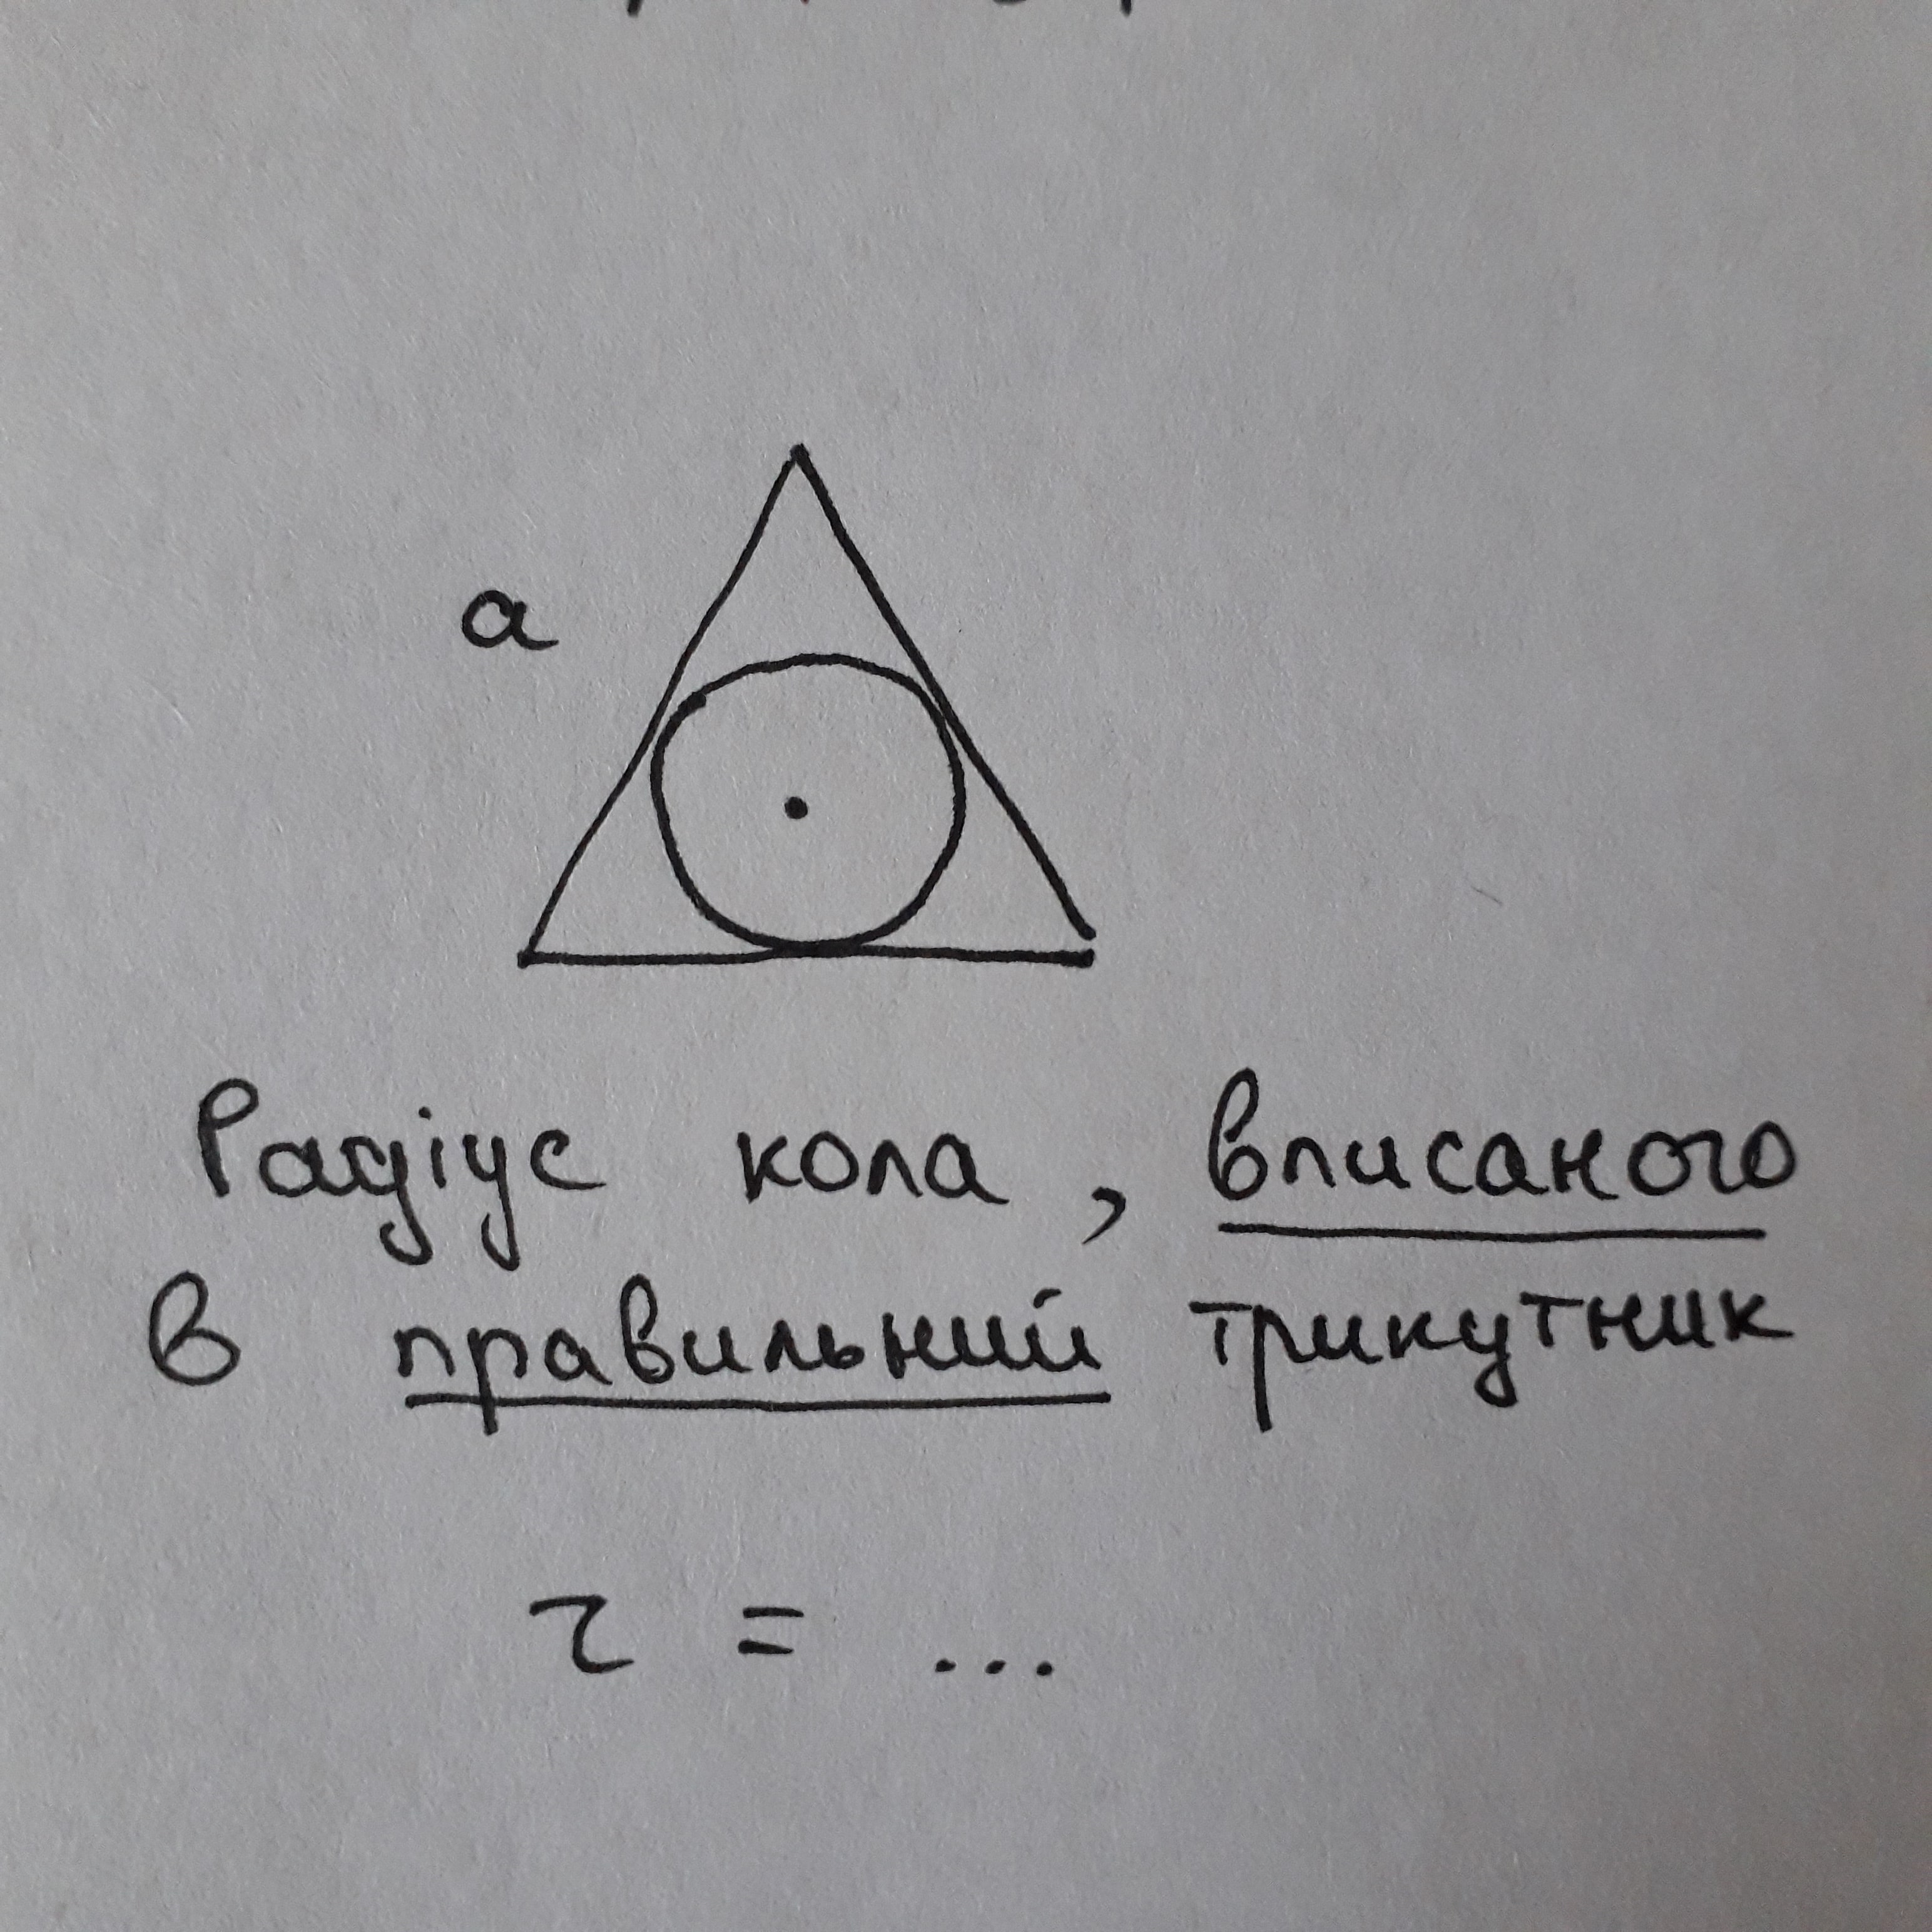 a
Радіус кола, вписаного
в правильний трикутник
r = ...